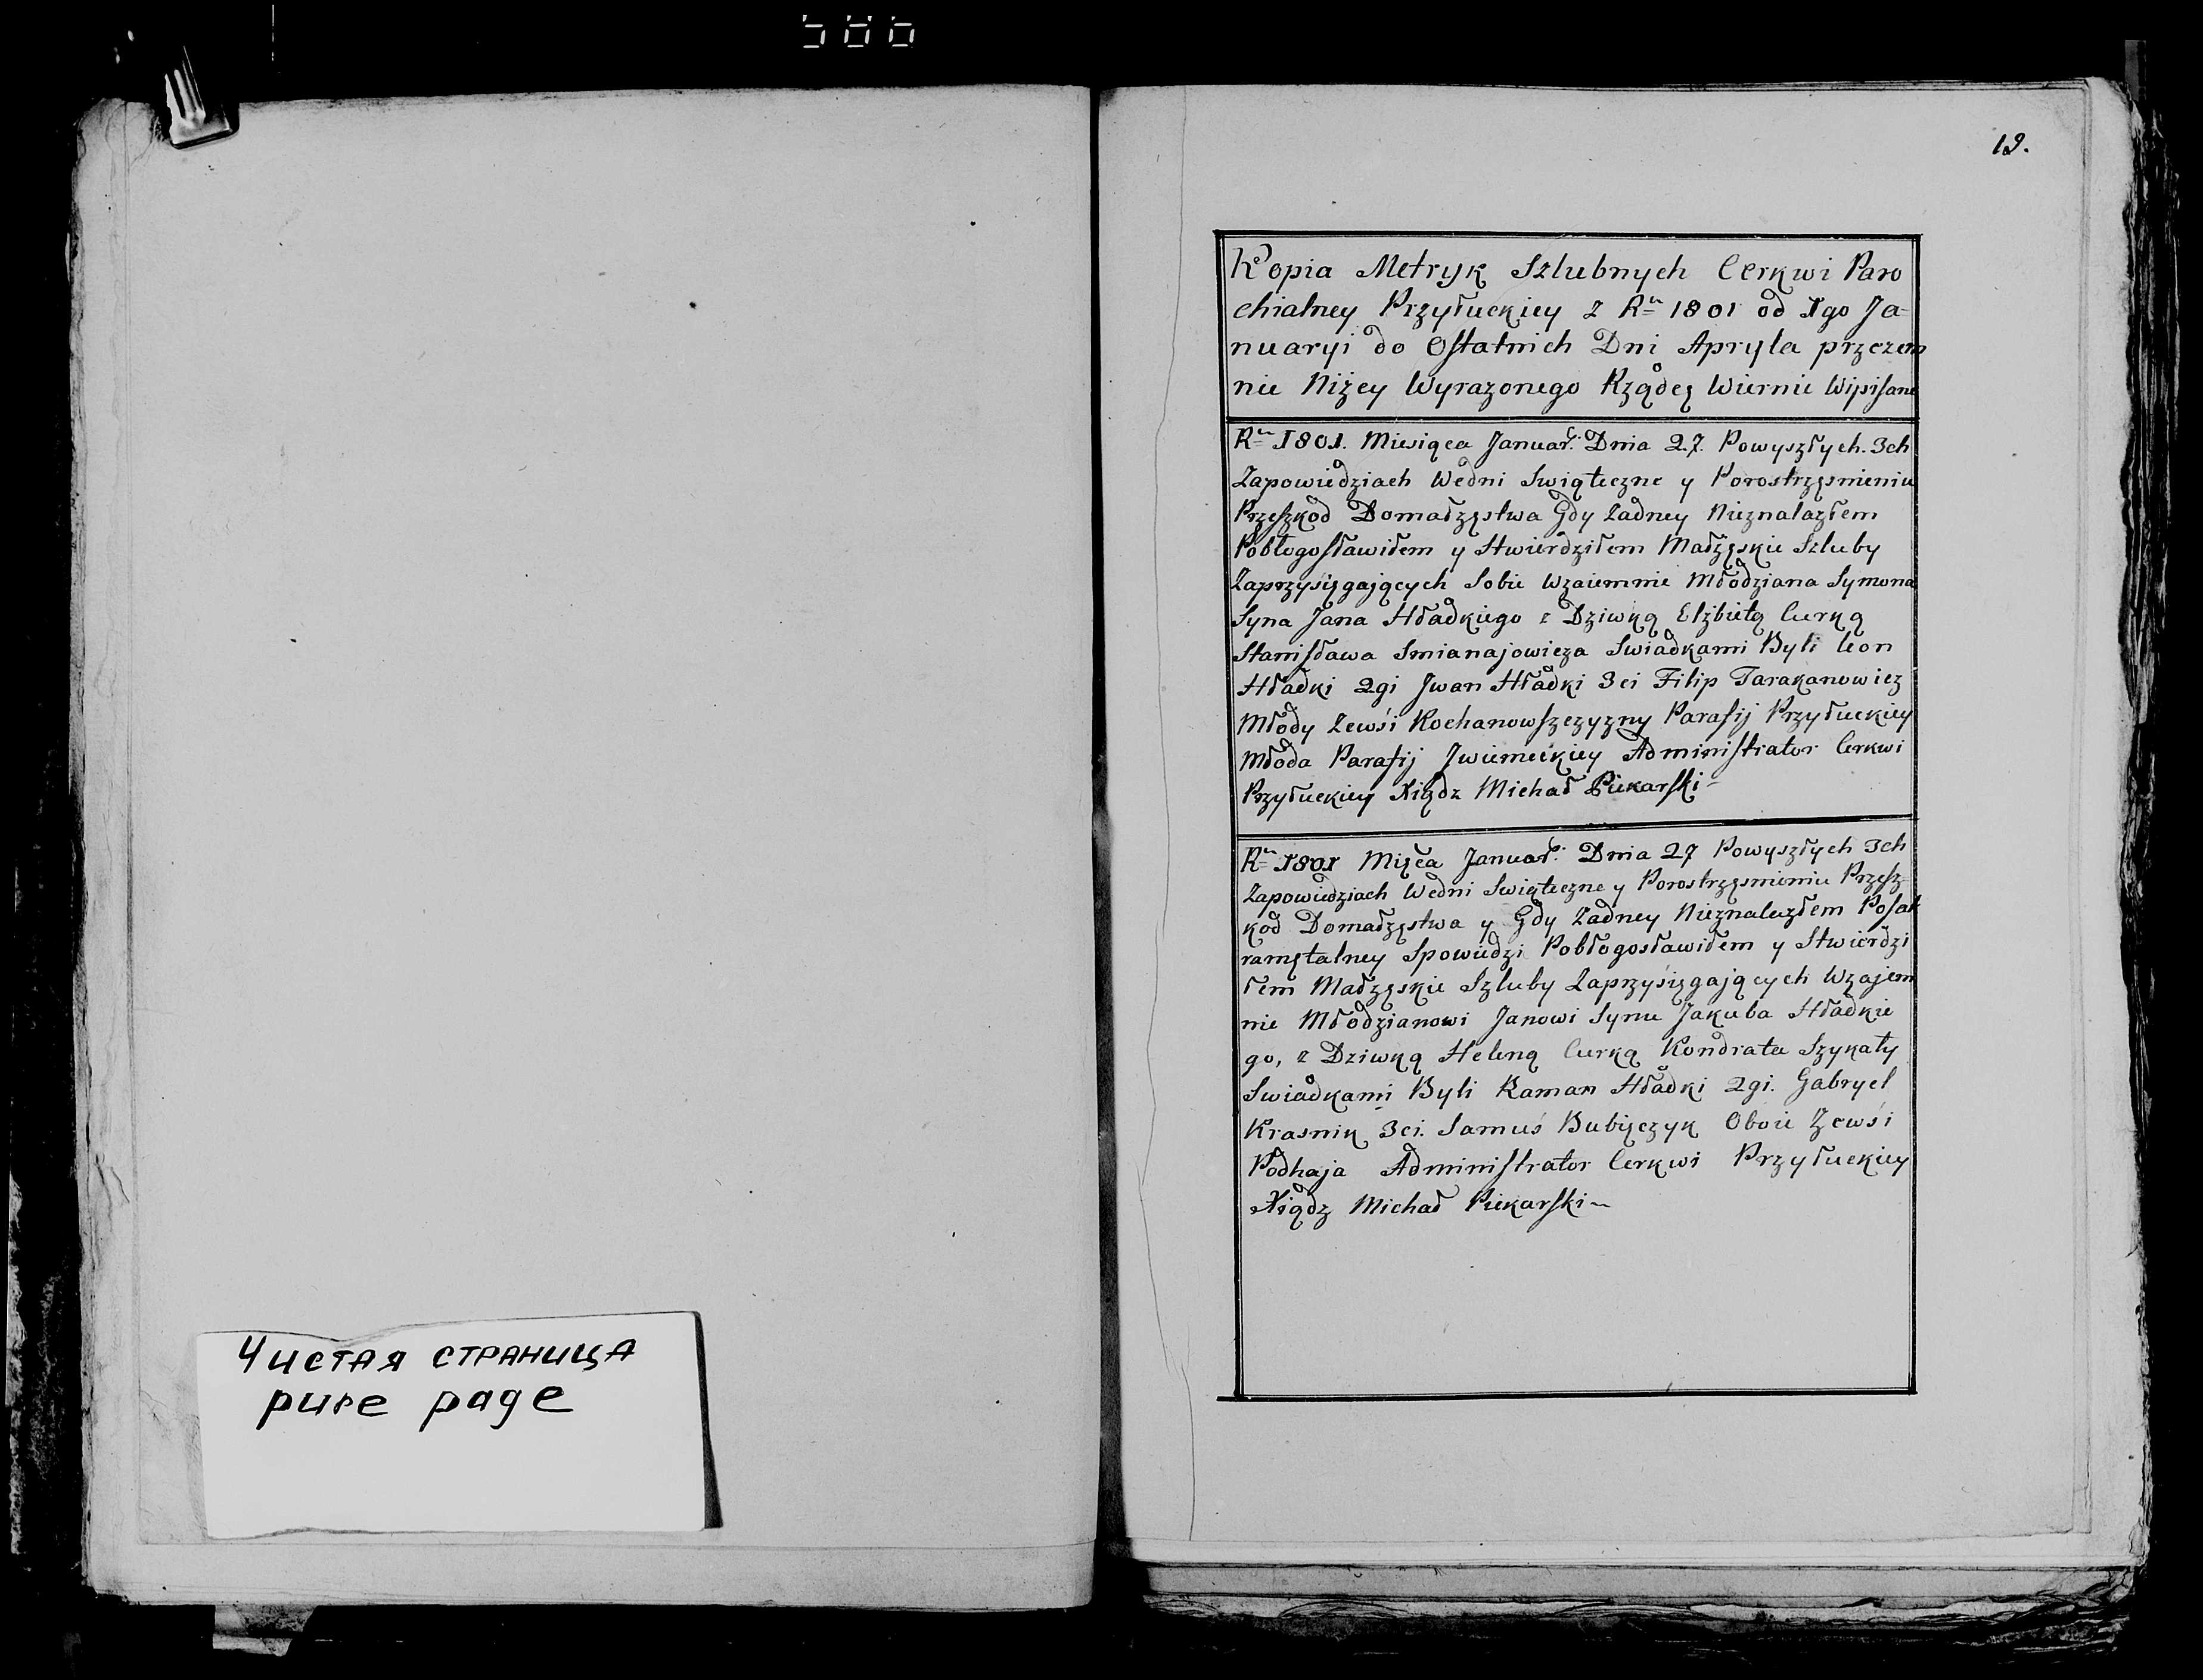 Чистая страница
pure page
19.
Kopia Metryk Szlubnych Cerkwi Paro
chialney Przyłuckiey z Rᵘ 1801 od 1go Ja=
nuaryi do Ostatnich Dni Apryla przezem
nie Niżey Wyrazonego Rządcę Wiernie Wipisane
Rᵘ 1801. Miesiąca Januar: Dnia 27. Powyszłych. 3ch
Zapowiedziach Wedni Swiąteczne y Porostrząsnieniu
Przeszkod Domałzęstwa Gdy Zadney Nieznalazłem
Pobłogosławiłem y Stwierdziłem Małzęskie Szluby
Zaprzysięgających Sobie Wzaiemnie Młodziana Symona
Syna Jana Hładkiego z Dziwką Elżbietą Curką
Stanisława Smianajowicza Swiadkami Byli Leon
Hładki 2gi Jwan Hładki 3ci Filip Tarakanowicz
Młody Zewśi Kochanowszczyzny Parafij Przyłuckiey
Młoda Parafij Jwienieckiey Administrator Cerkwi
Przyłuckiey Xiądz Michał Piekarski
Rᵘ 1801 Mięca Januar: Dnia 27 Powyszłych 3ch
Zapowiedziach Wedni Swiąteczne y Porostrząsnieniu Przesz
kod Domałzęstwa y Gdy Zadney Nieznalazłem Posak
ramętalney Spowiedzi Pobłogosławiłem y Stwierdzi
łem Małzęskie Szluby Zaprzysięgających Wzajem
nie Młodzianowi Janowi Synu Jakuba Hładkie
go, z Dziwką Heleną Curką Kondrata Szykały
Swiadkami Byli Raman Hładki 2gi. Gabryel
Krasnik 3ci. Samuś Bubięczyk Oboie Zewśi
Podhaja Administrator Cerkwi Przyłuckiey
Xiądz Michał Piekarski